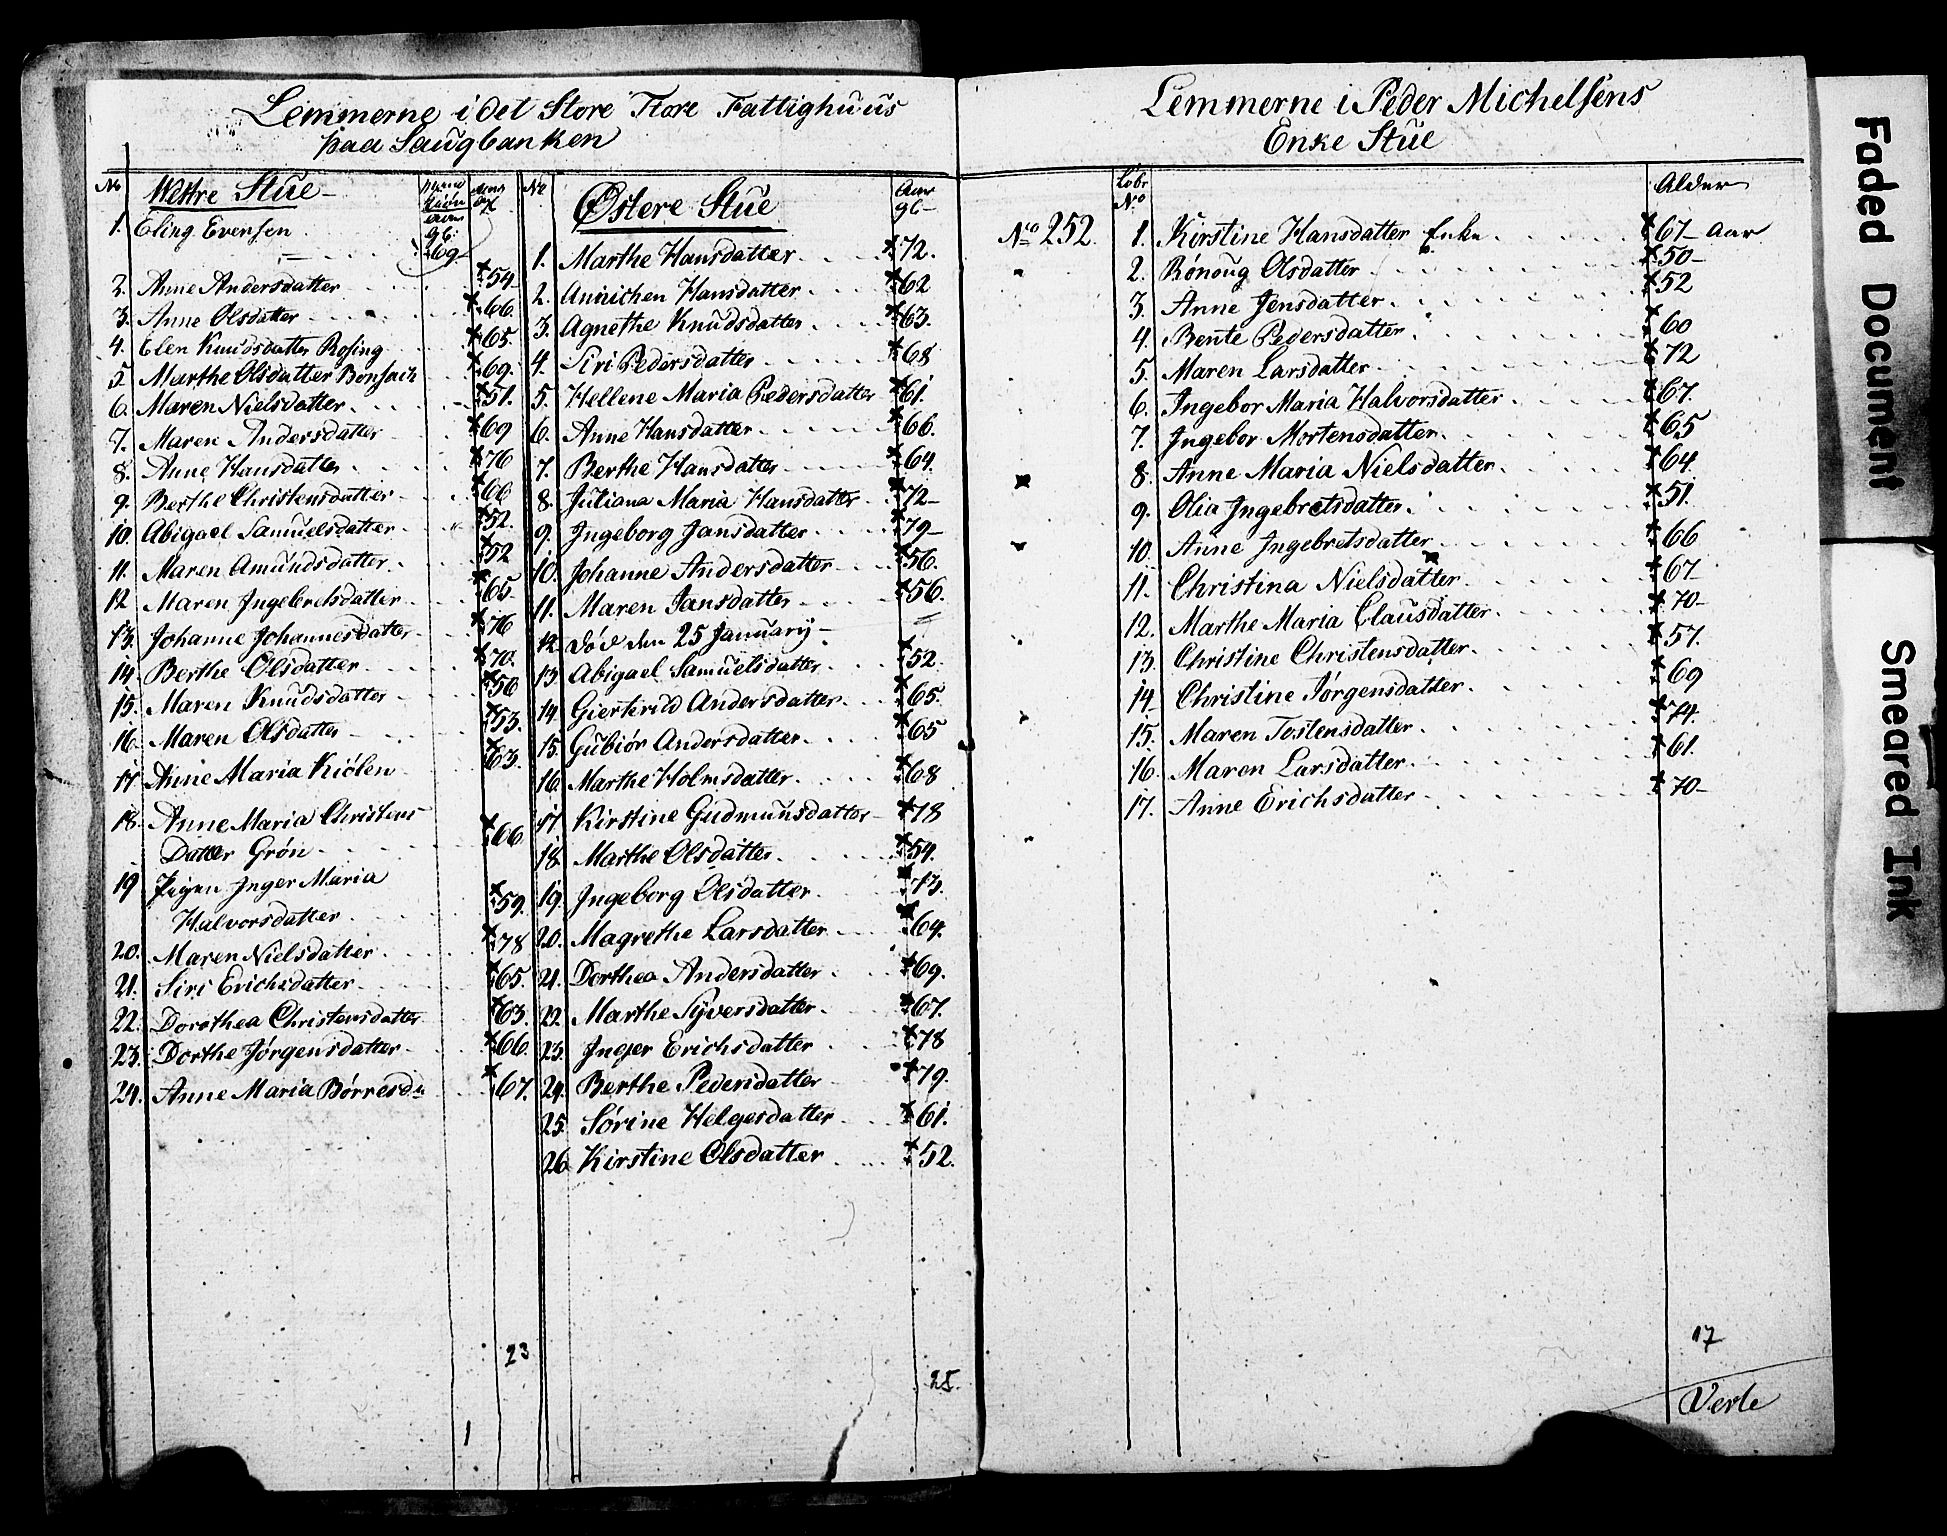 Lemmerne i det Store Fattighuus
paa Saugbanken
No Westre Stue
1. Eling Evensen 69
2. Anne Andersdatter 54
3. Anne Olsdatter 66
4. Elen Knudsdatter Rosing 65
5. Marthe Olsdatter 69
6. Maren Nielsdatter 51.
7. Maren Andersdatter 69
8. Anne Hansdatter 76
9. Berthe Christensdatter 66
10. Abigael Samuelsdatter 52.
11. Maren Amundsdatter 52
12 Maren Ingebretsdatter 65
13. Johanne Johannesdatter 76
14. Berthe Olsdatter 70.
15. Maren Knudsdatter 56
16. Maren Olsdatter 53.
17 Anne Maria Kiölen 63.
18. Anne Maria Christens
Datter Grön 66
19 Inger Maria
Halvorsdatter 59.
20. Maren Nielsdatter 78
21. Siri Erichsdatter 65.
22. Dorothea Christensdatter 63.
23. Dorthe Jörgensdatter 66.
24. Anne Maria Börresd. 67.
23
1
No Östere Stue Aar
1. Marthe Hansdatter 72.
2. Annichen Hansdatter 62
3. Agnethe Knudsdatter 63.
4. Siri Pedersdatter 68
5. Hellene Maria Pedersdatter 61.
6. Anne Hansdatter 66.
7. Berthe Hansdatter 64.
8. Juliana Maria Hansdatter 72
9. Ingeborg Jansdatter 79
10. Johanne Andersdatter 56.
11. Maren Jansdatter 56.
12. död den 25 January
13 Abigael Samuelsdatter 52.
14. Giertrud Andersdatter 65.
15. Gubiör Andersdatter 65
16. Marthe Holmsdatter 68
17 Kirstine Gudmunsdatter 78
18. Marthe Olsdatter 54.
19. Ingeborg Olsdatter 73.
20. Magrethe Larsdatter 64.
21. Dorthea Andersdatter 69.
22. Marthe Syversdatter 67.
23. Inger Erichsdatter 78
24. Berthe Pedersdatter 79.
25. Sörine Helgesdatter 61.
26. Kirstine Olsdatter 52.
25.
Lemmerne i Peder Michelsens
Enke Stue
Lobe No Alder
No 252. 1. Kirstine Hansdatter Enke 67 Aar
2. Rönoug Olsdatter 50
3. Anne Jensdatter 52
4. Bente Pedersdatter 60
5. Maren Larsdatter 72
6. Ingebor Maria Halvorsdatter 67.
7. Ingebor Mortensdatter 65
8. Anne Maria Nielsdatter 64
9. Olia Ingebretsdatter 51.
10. Anne Ingebretsdatter 66
11. Christina Nielsdatter 67
12. Marthe Maria Clausdatter 70
13. Christine Christensdatter 57.
14 Christine Jörgensdatter 69
15. Maren Tostensdatter 74.
16. Maren Larsdatter 61.
17. Anne Erichsdatter 70
17
Verte
Faded Document
Smeared Ink